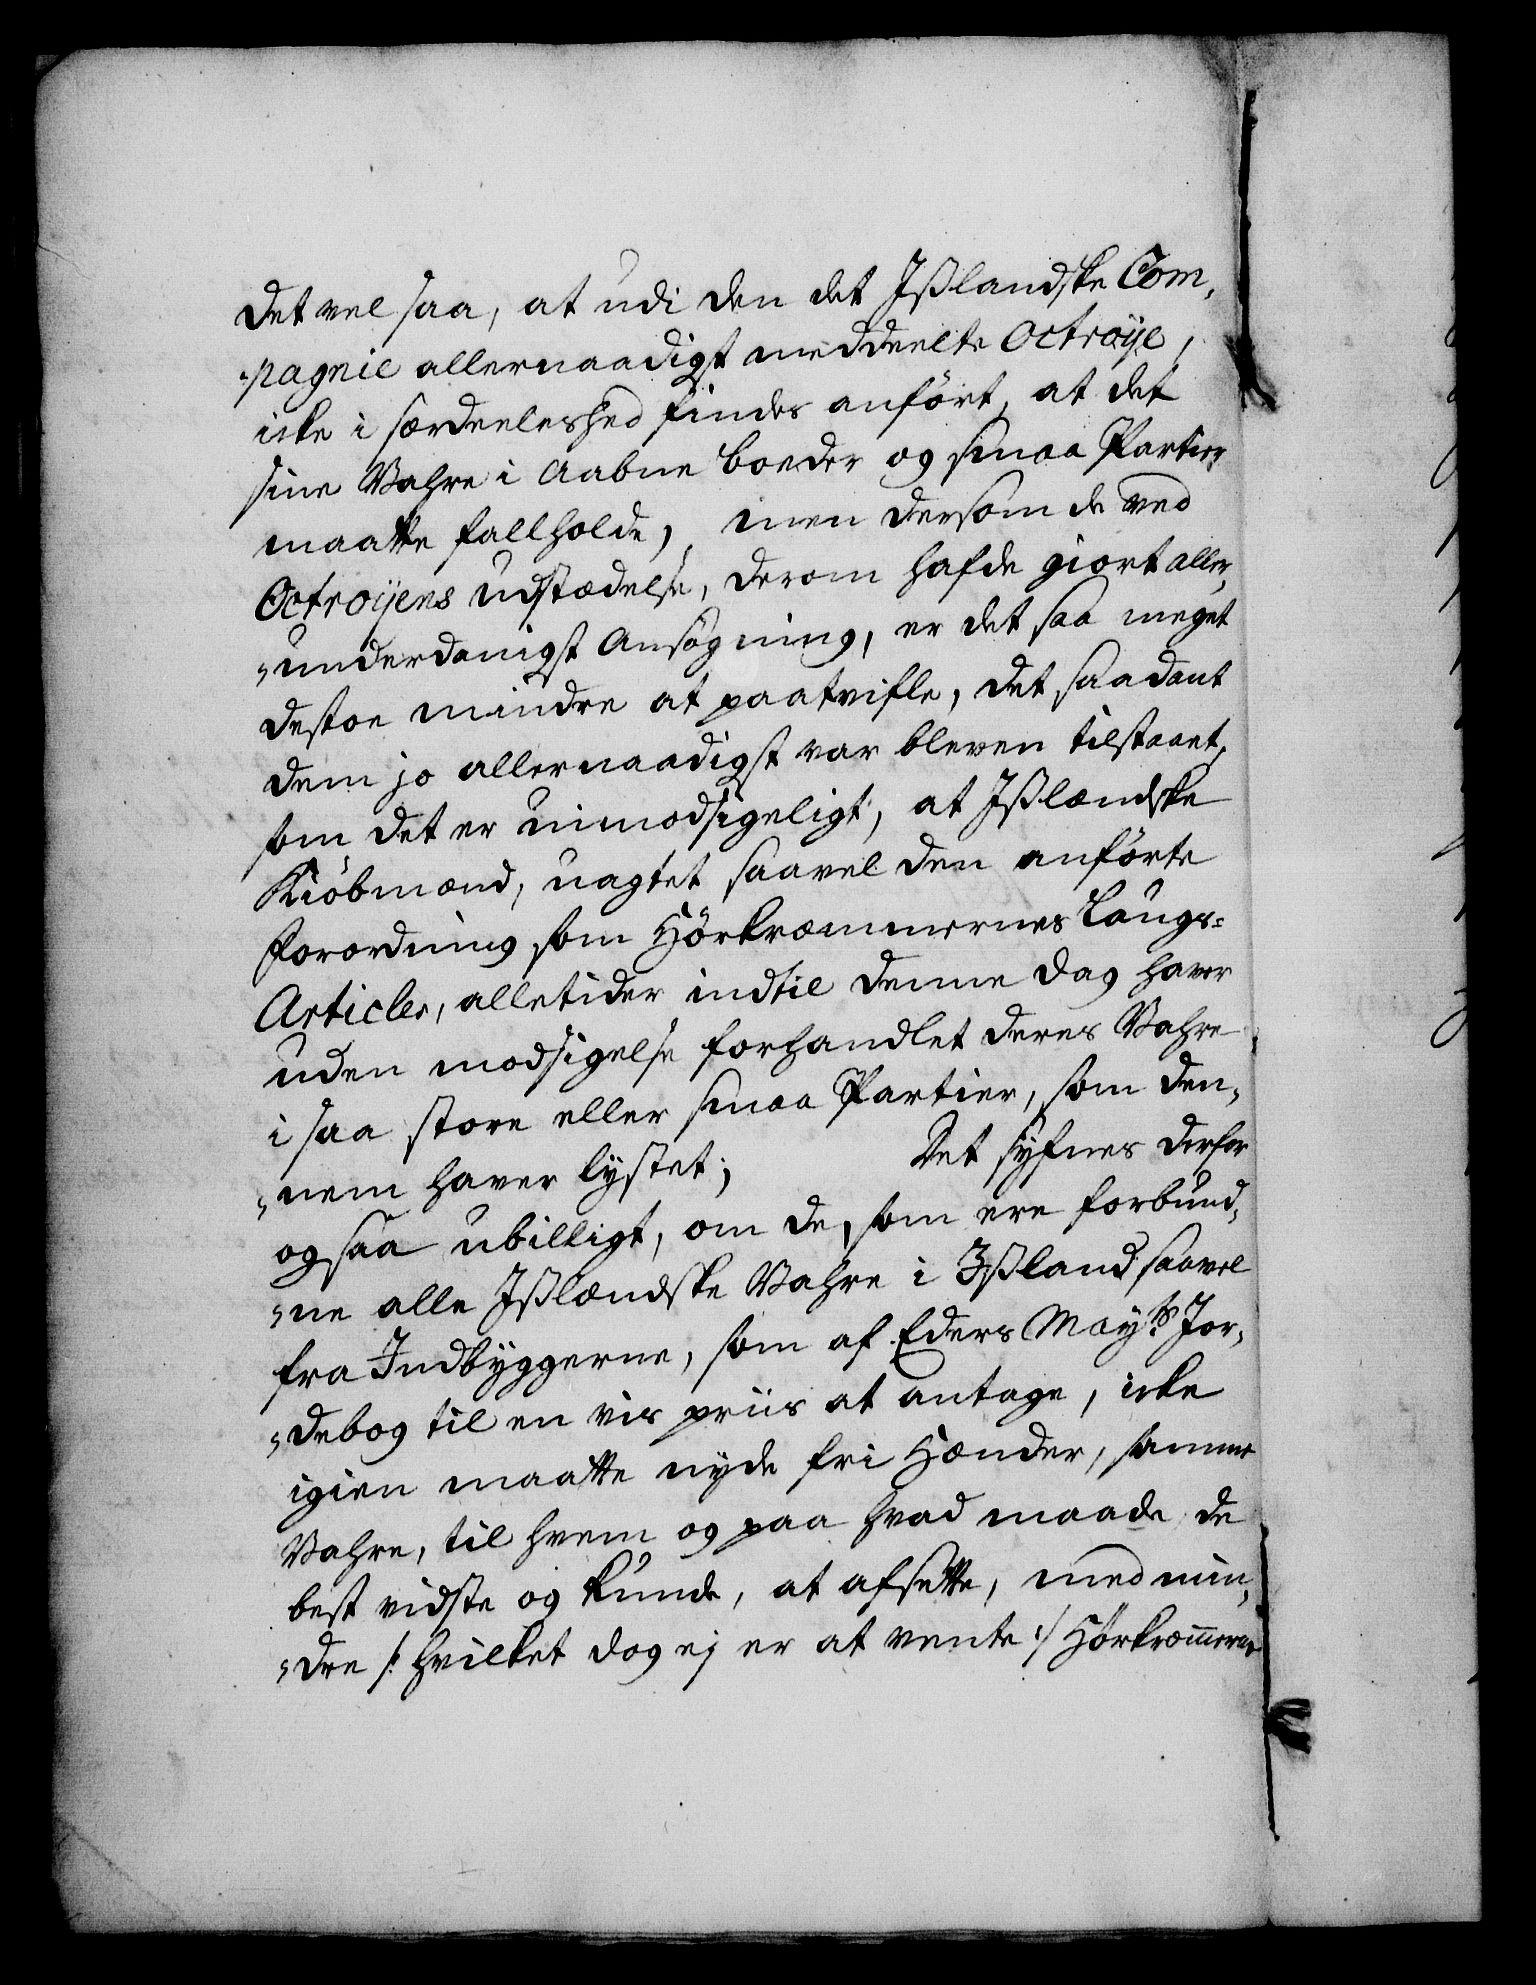 det vel saa, at udi den det Ißlandske Com,
„pagnie allernaadigst meddeelte Octroye,
icke i særdeeleshed findes anført, at det
sine Vahre i aabne boeder og smaa Partier
maatte fallholde, men dersom de ved
Octroijens udstædelse, derom hafde giort aller,
„underdanigst Ansøgning, er det saa meget
destoe mindre at paatvifle, det saadant
dem jo allernaadigst var bleven tilstaaet,
som det er uimodsigeligt, at Ißlændske
Kiöbmænd, uagtet saavel den anførte
forordning som Hörkræmmernes Laugs-
Articler, alletider indtil denne dag haver
uden modsigelse forhandlet deres Vahre
i saa store eller smaa Partier, som den,
„nem haver lystet; Det syfnes derfor
og saa ubilligt, om de, som ere forbund,
„ne alle Ißlændske Vahre i Ißland saavel
fra Indbyggerne, som af Eders Mayts Jor,
„debog til en vis priis at antage, icke
igien maatte nyde fri Hænder, samme
Vahre, til hvem og paa hvad maade de
best vidste og kunde, at afsette, med min,
„dre /: hvilket dog ej er at vente :/ Hörkræmerne